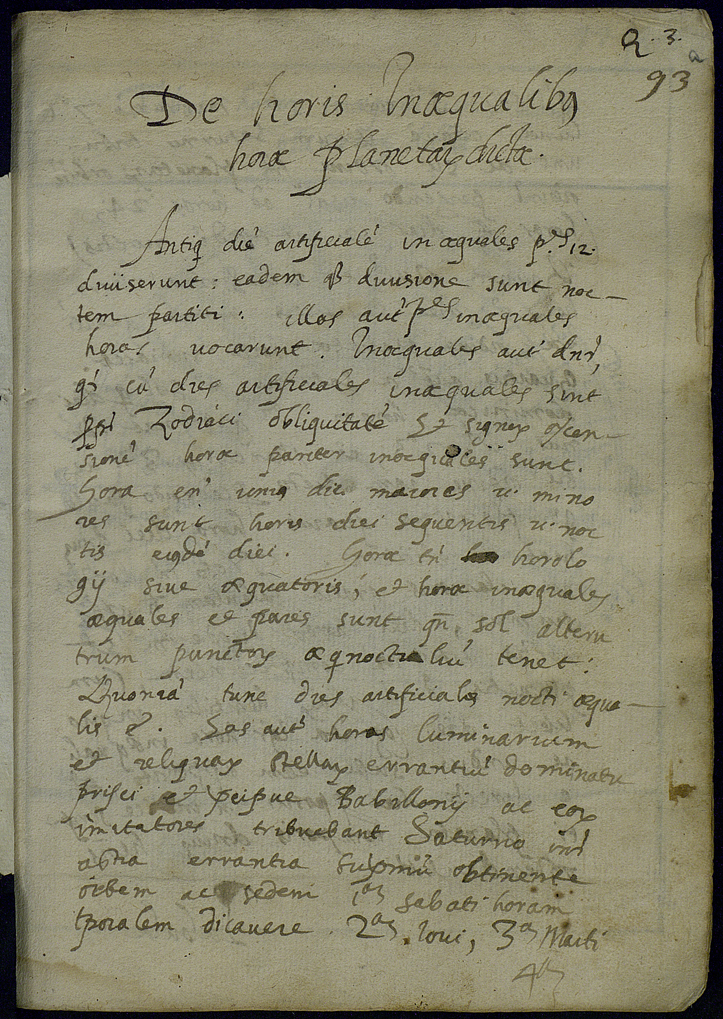 Q. 3.
93
De horis Inæqualibꝰ
horæ Planetaꝝ dictæ.
Antiq̃ diē artificialē in æquales p.ᵉˢ 12.
diuiserunt: eadem qȝ diuisione sunt noc-
tem partiti: illas aut̃ pᵉˢ inæquales
horas uocarunt. Inæquales aut̃ dnr̃,
cū dies artificiales inæquales sint
Zodiaci obliquitatē et signoꝝ ascen-
sionē horæ pariter inæquales sunt.
Hora en̄ unius diei maiores ul mino
res sunt horis diei sequentis ul noc
tis eiusdē diei. Horæ tn̄ horolo
gij siue æquatoris, et horæ inæquales
æquales et pares sunt qñ sol alteru
trum punctoꝝ æq̃noctialiū tenet:
Quoniā tunc dies artificialis nocti æqua-
lis ē. Has aut̃ horas luminarium
et reliquaꝝ stellaꝝ errantiū dominatu
prisci et p̃cipue Babillonij ac eoꝝ
imitatores tribuebant Saturno int̃
astra errantia sup̃mū obtinente
orbem ac sedem 1ᵃᵐ sabati horam
tp̃oralem dicauere. 2ᵃᵐ Ioui, 3ᵃᵐ Marti
4ᵃᵐ